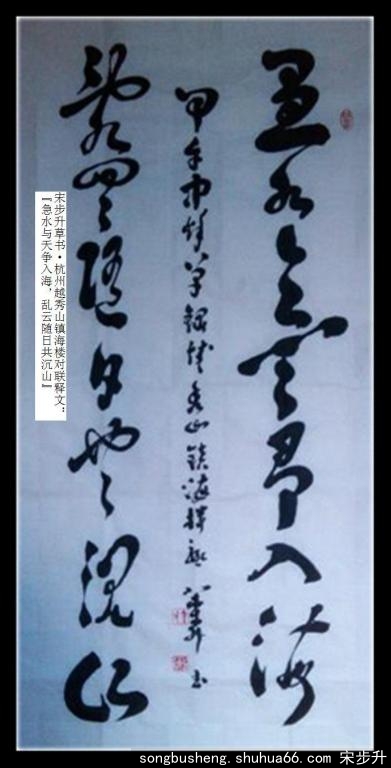 急水与天争入海
甲午中秋草录杭州越秀山镇海楼联
步升书
乱云随日共沉山
宋步升草书·杭州越秀山镇海楼对联释文：
『急水与天争入海，乱云随日共沉山』
songbusheng.shuhua66.com 宋步升